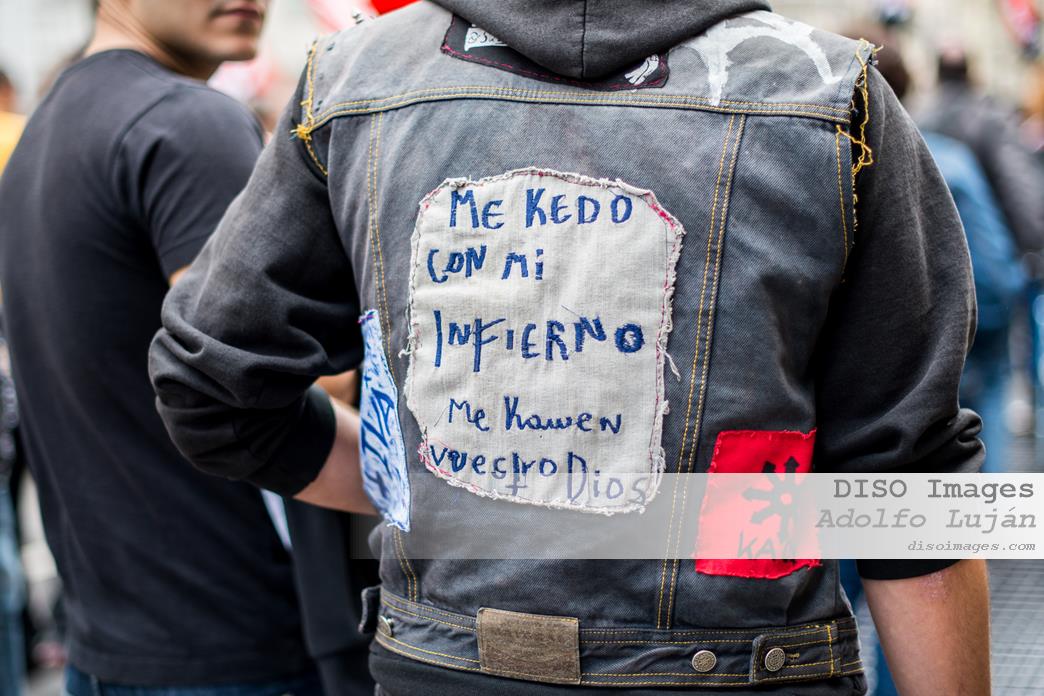 ME KEDO
CON Mi
INFIERNO
Me Kawen
vuestro Dios
DISO Images
Adolfo Luján
disoimages.com